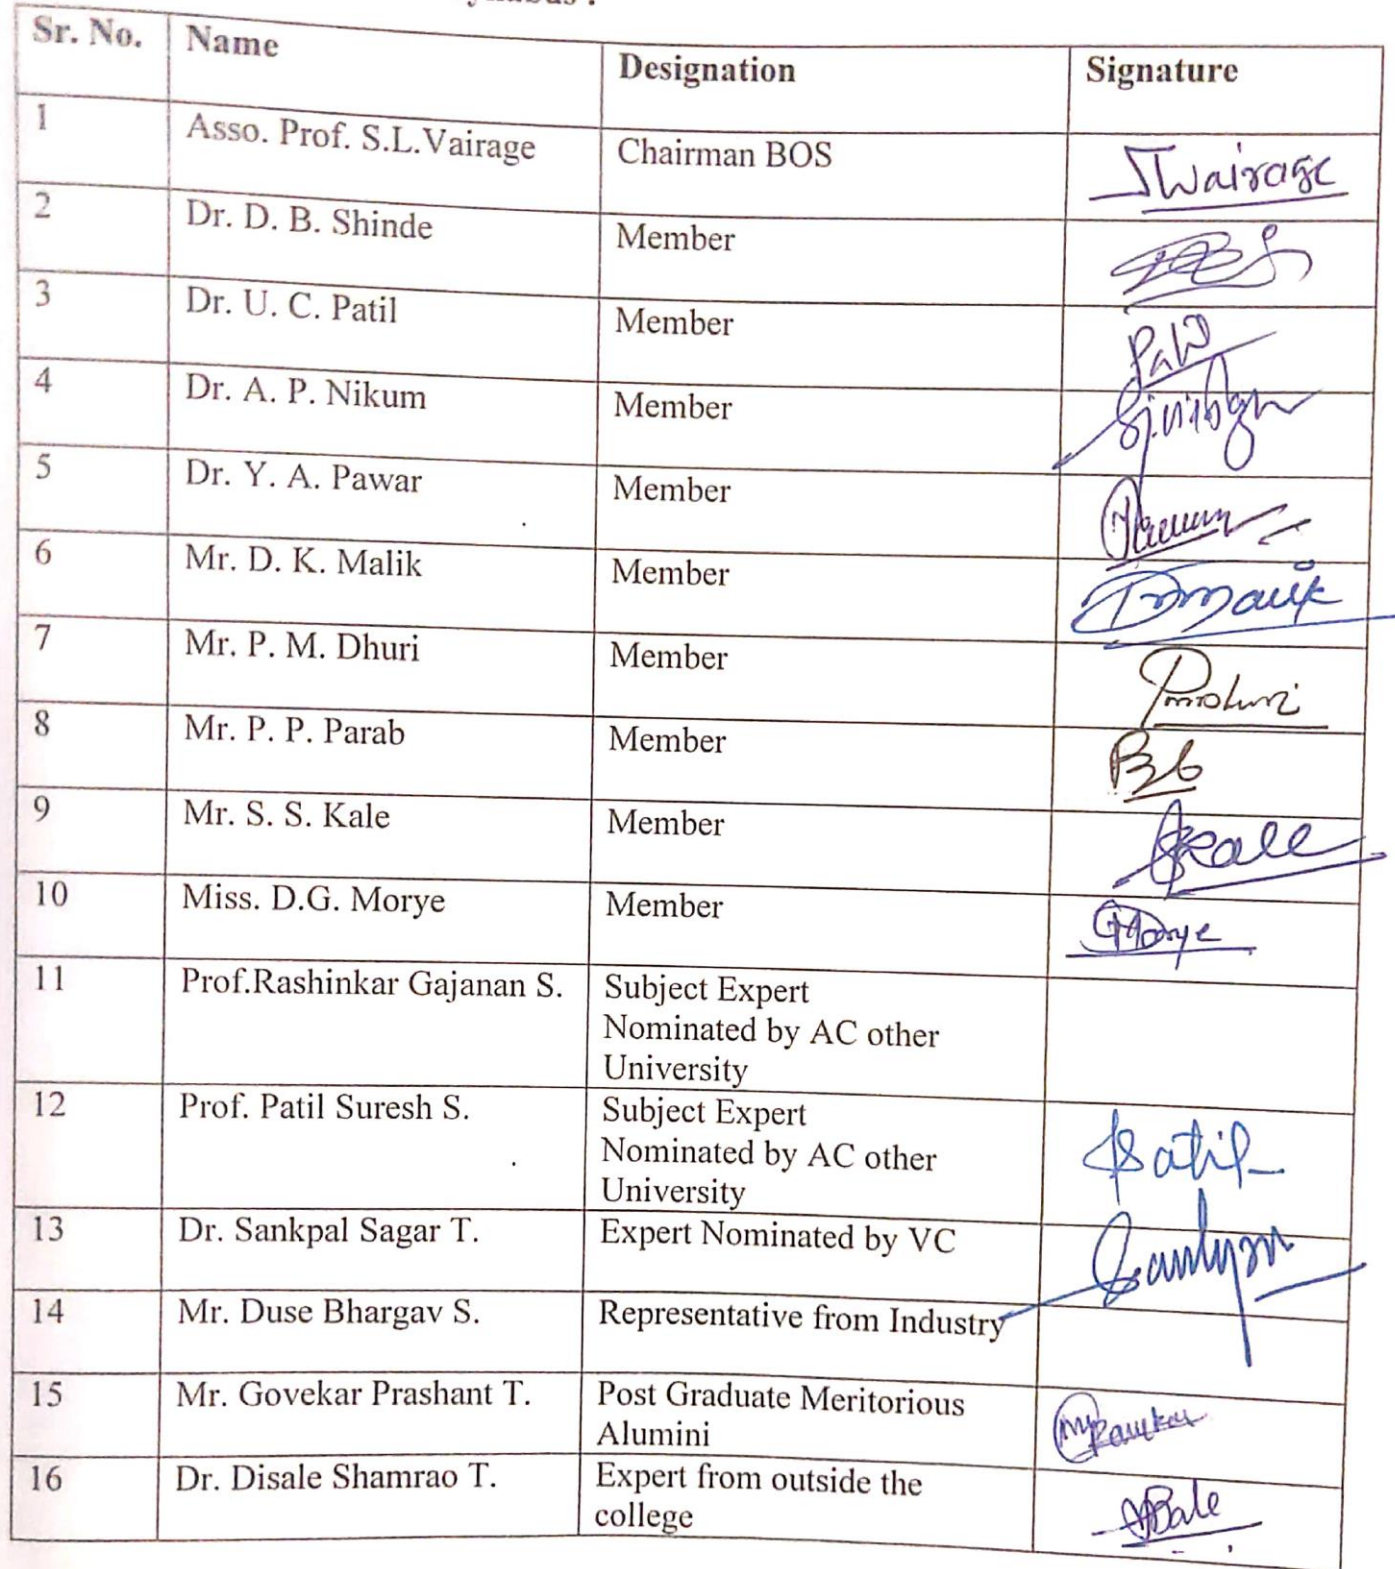 Sr. No. Name Designation Signature
1 Asso. Prof. S.L.Vairage Chairman BOS
2 Dr. D. B. Shinde Member
3 Dr. U. C. Patil Member
4 Dr. A. P. Nikum Member
5 Dr. Y. A. Pawar Member
6 Mr. D. K. Malik Member
7 Mr. P. M. Dhuri Member
8 Mr. P. P. Parab Member
9 Mr. S. S. Kale Member
10 Miss. D.G. Morye Member
11 Prof.Rashinkar Gajanan S. Subject Expert
Nominated by AC other
University
12 Prof. Patil Suresh S. Subject Expert
Nominated by AC other
University
13 Dr. Sankpal Sagar T. Expert Nominated by VC
14 Mr. Duse Bhargav S. Representative from Industry
15 Mr. Govekar Prashant T. Post Graduate Meritorious
Alumini
16 Dr. Disale Shamrao T. Expert from outside the
college